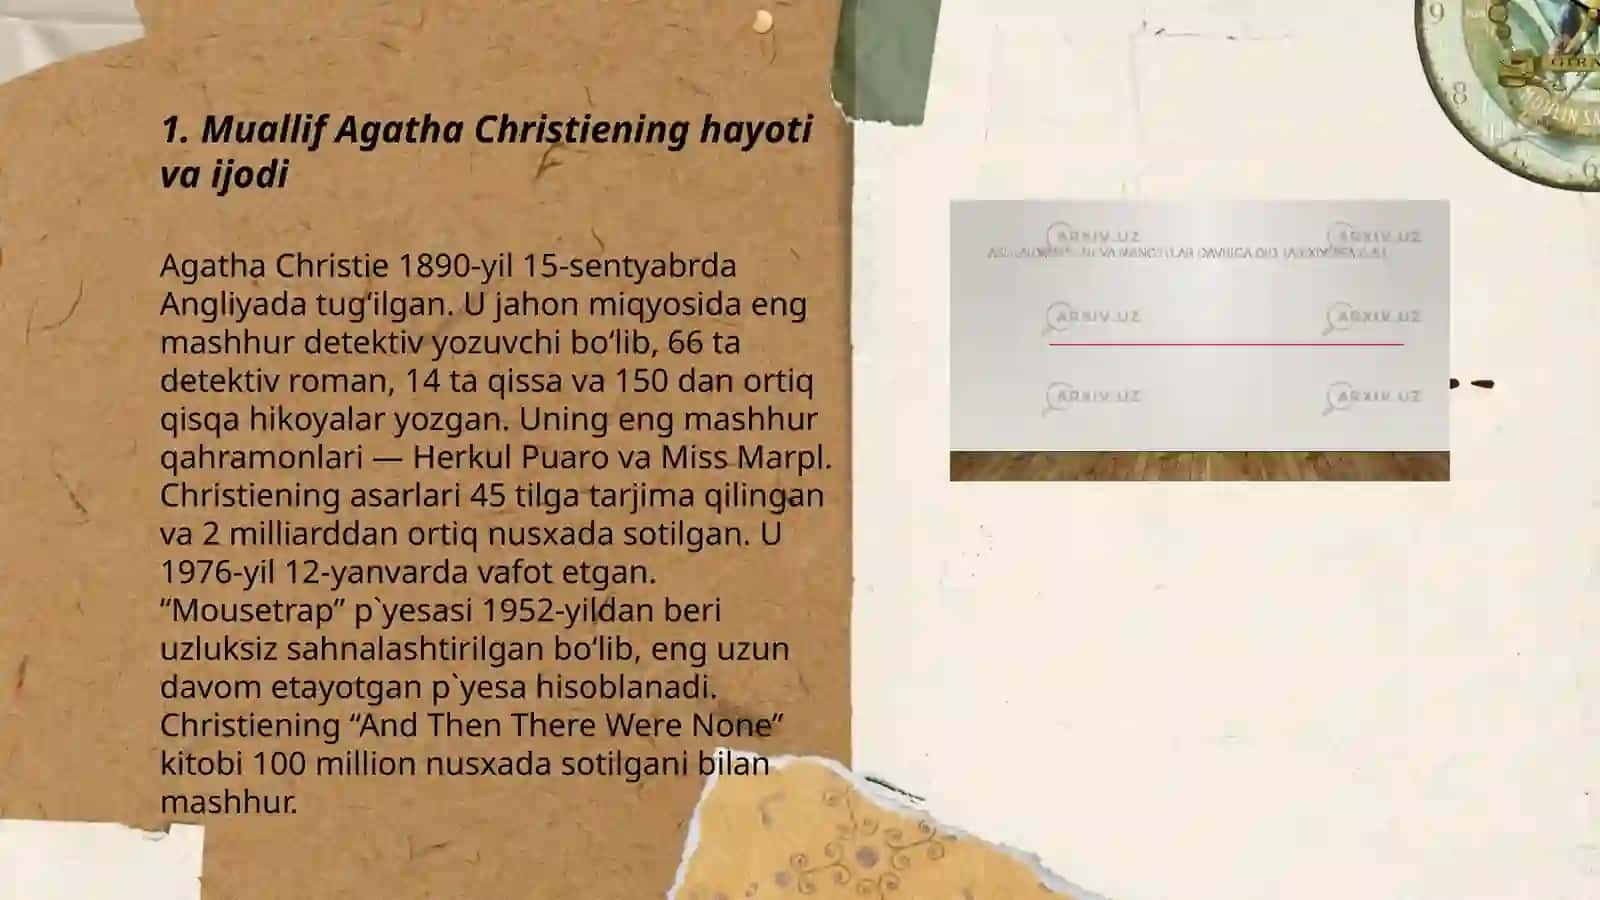 1. Muallif Agatha Christiening hayoti
va ijodi
Agatha Christie 1890-yil 15-sentyabrda
Angliyada tug‘ilgan. U jahon miqyosida eng
mashhur detektiv yozuvchi bo‘lib, 66 ta
detektiv roman, 14 ta qissa va 150 dan ortiq
qisqa hikoyalar yozgan. Uning eng mashhur
qahramonlari — Herkul Puaro va Miss Marpl.
Christiening asarlari 45 tilga tarjima qilingan
va 2 milliarddan ortiq nusxada sotilgan. U
1976-yil 12-yanvarda vafot etgan.
“Mousetrap” p`yesasi 1952-yildan beri
uzluksiz sahnalashtirilgan bo‘lib, eng uzun
davom etayotgan p`yesa hisoblanadi.
Christiening “And Then There Were None”
kitobi 100 million nusxada sotilgani bilan
mashhur.
9
8
5
6
ARXIV.UZ ARXIV.UZ
ARXIV.UZ ARXIV.UZ
ARXIV.UZ ARXIV.UZ